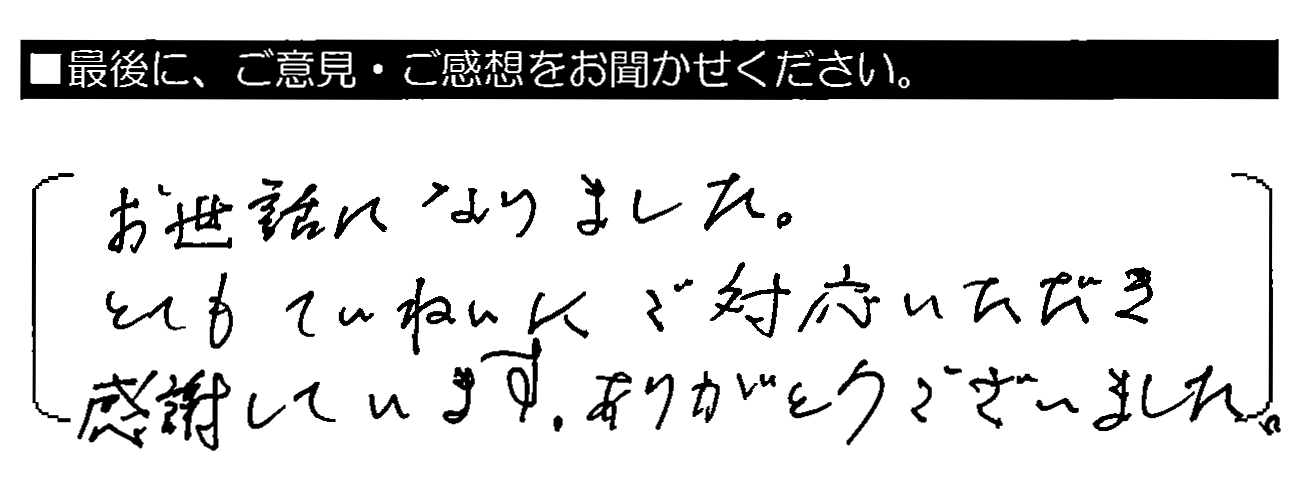 ■最後に、ご意見・ご感想をお聞かせください。
お世話になりました。
とてもていねいにご対応いただき
感謝しています。ありがとうございました。